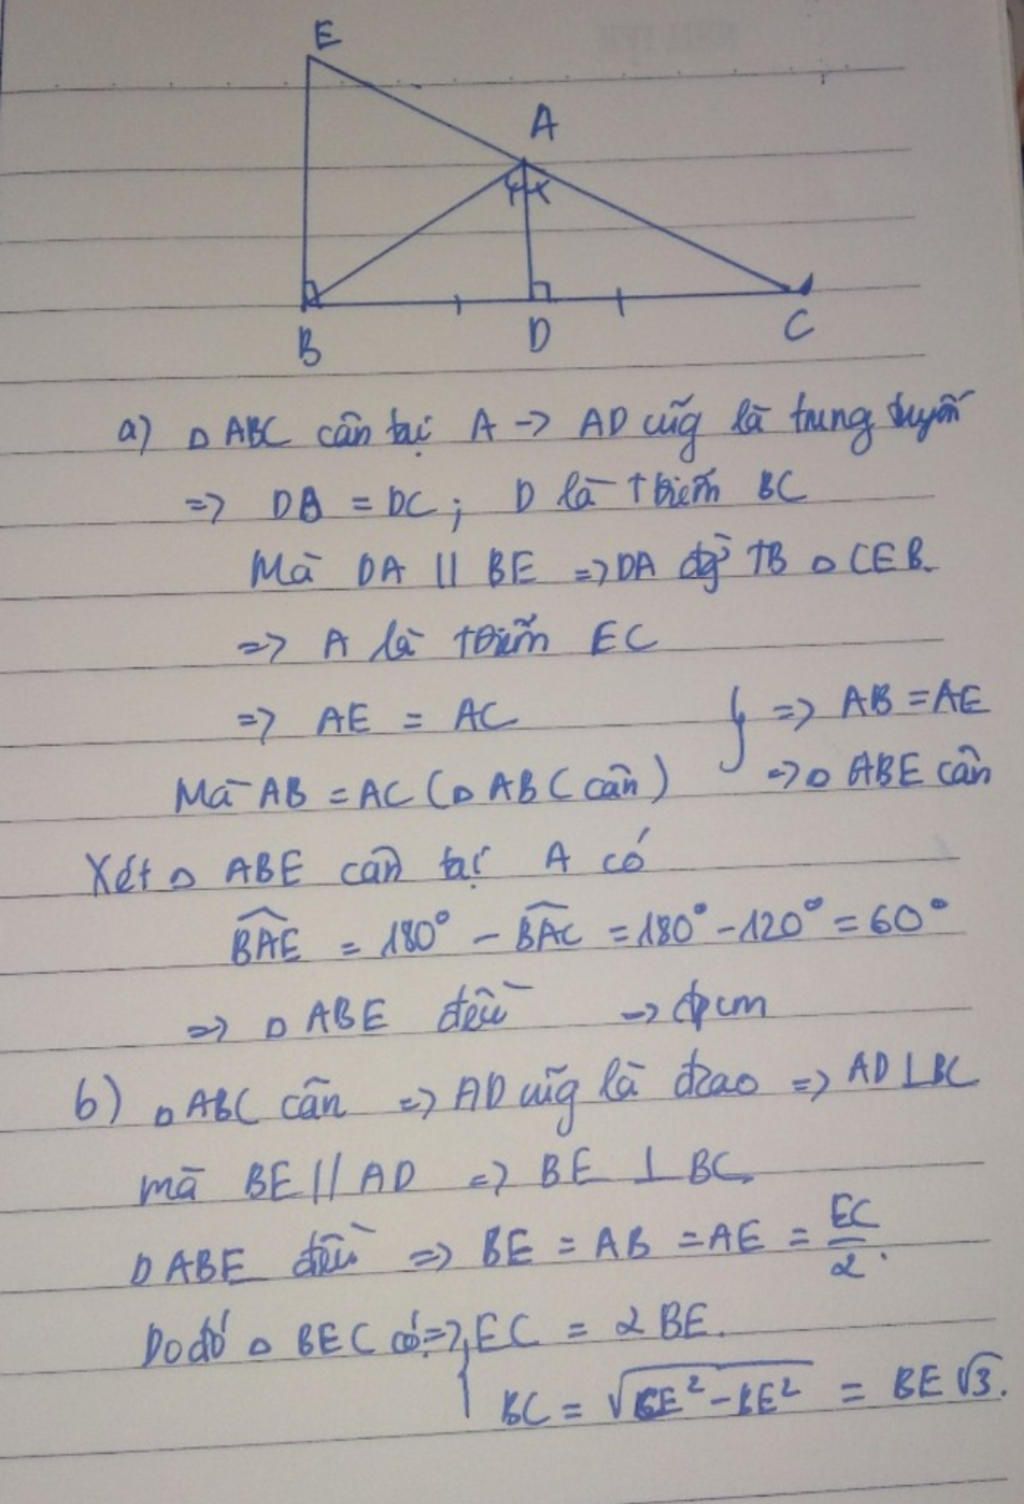 E
A
B
D
C
a) Δ ABC cân tại A -> AD cũg là trung tuyến
=> DB = DC; D là tđiểm BC
Mà DA // BE => DA đg TB Δ CEB.
=> A là tđiểm EC
=> AE = AC } => AB = AE
Mà AB = AC (Δ ABC cân) => Δ ABE cân
Xét Δ ABE cân tại A có
\widehat{BAE} = 180° - \widehat{BAC} = 180° - 120° = 60°
=> Δ ABE đều -> đpcm
b) Δ ABC cân => AD cũg là đcao => AD ⊥ BC
mà BE // AD => BE ⊥ BC.
Δ ABE đều => BE = AB = AE = \frac{EC}{2}.
Do đó Δ BEC có: => { EC = 2BE.
BC = \sqrt{CE² - BE²} = BE√3.